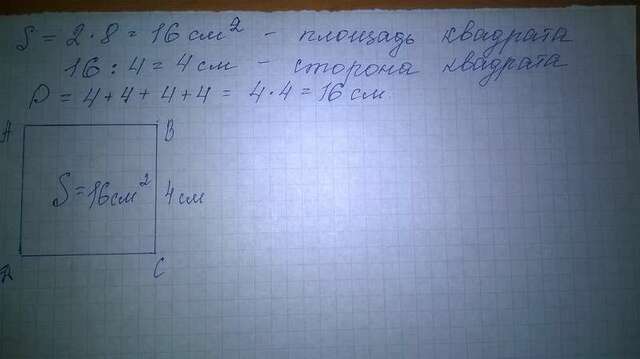 S = 2 · 8 = 16 см² - площадь квадрата
16 : 4 = 4 см - сторона квадрата
P = 4 + 4 + 4 + 4 = 4 · 4 = 16 см
A B
S = 16 см² 4 см
Д C